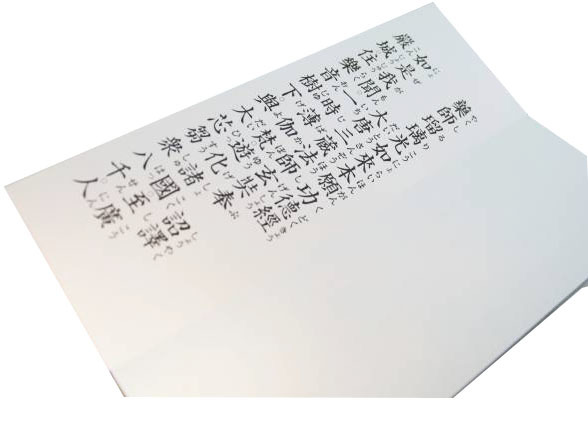 藥師瑠璃光如來本願功德經
大唐三藏法師玄奘奉 詔譯
如是我聞一時薄伽梵遊化諸國至廣
嚴城住樂音樹下與大苾芻衆八千人